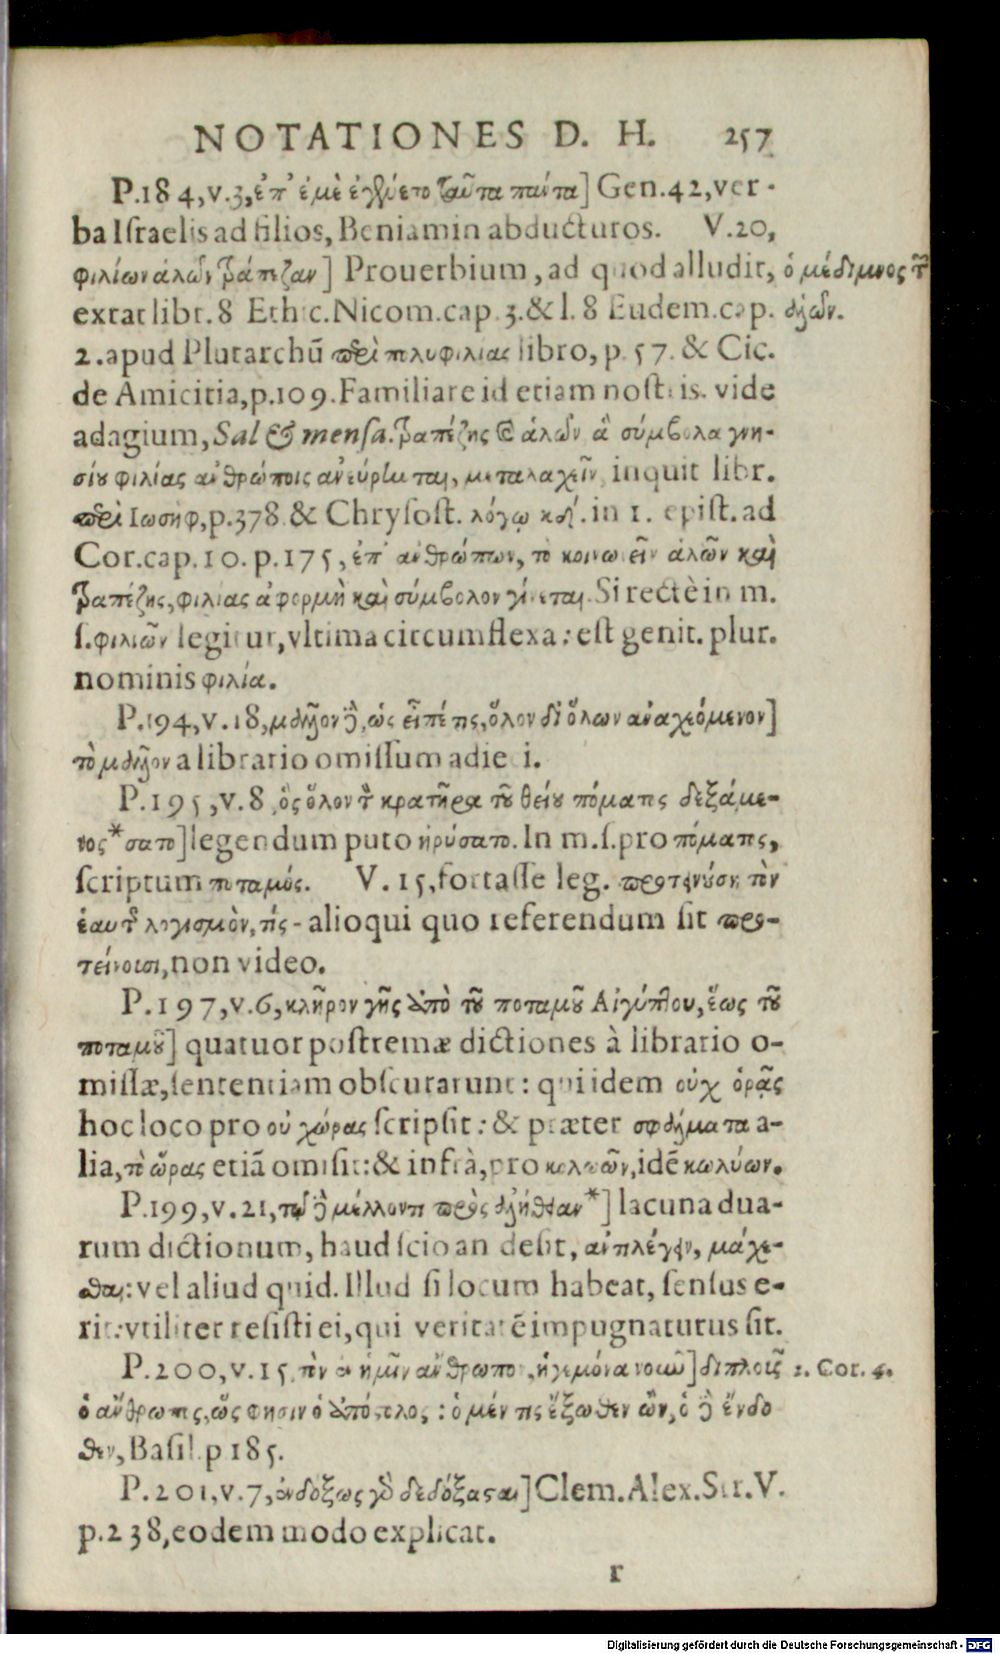 NOTATIONES D. H. 257
P.184,v.3,ἐπ' ἐμὲ ἐγένετο ταῦτα πάντα] Gen.42,ver-
ba Iſraelis ad filios, Beniamin abducturos. V.20,
φιλίων ἁλῶν τράπεζαν] Prouerbium, ad quod alludit, ὁ μέδιμνος τῶν
extat libr. 8 Ethic. Nicom. cap 3. & l. 8 Eudem. cap. ἁλῶν.
2. apud Plutarchū περὶ πολυφιλίας libro, p. 57. & Cic.
de Amicitia, p.109. Familiare id etiam noſtris. vide
adagium, Sal & menſa. τραπέζης καὶ ἁλῶν ἃ σύμβολα γνη-
σίου φιλίας ἀνθρώποις ἀνεύρηται, μεταλαχεῖν, inquit libr.
περὶ Ιωσηφ, p.378 & Chryſoſt. λόγῳ κδ. in 1. epiſt. ad
Cor. cap. 10. p. 175, ἐπ' ἀνθρώπων, τὸ κοινωνεῖν ἁλῶν καὶ
τραπέζης, φιλίας ἀφορμὴ καὶ σύμβολον γίνεται. Si rectè in m.
ſ. φιλιῶν legitur, vltima circumflexa: eſt genit. plur.
nominis φιλία.
P.194,v.18, μᾶλλον δὲ, ὡς εἶπέ τις, ὅλον δι' ὅλων ἀναχεόμενον]
τὸ μᾶλλον a librario omiſſum adieci.
P.195,v.8, ὃς ὅλον τὸν κρατῆρα τοῦ θείου πόματος δεξάμε-
νος*σατο] legendum puto ἠρύσατο. In m. ſ. pro πόματος,
ſcriptum ποταμός. V. 15, fortaſſe leg. προτείνουσι τὸν
ἑαυτῶν λογισμὸν, τῆς - alioqui quo referendum ſit προ-
τείνουσι, non video.
P.197,v.6, κλῆρον γῆς ἀπὸ τοῦ ποταμοῦ Αἰγύπτου, ἕως τοῦ
ποταμοῦ] quatuor poſtremæ dictiones à librario o-
miſſæ, ſententiam obſcurarunt: qui idem οὐχ ὁρᾷς
hoc loco pro οὐ χώρας ſcripſit: & præter σφάλματα a-
lia, τὸ ὥρας etiā omiſit: & infrà, pro κολωῶν, idē κωλύων.
P.199,v.21, τῷ δὲ μέλλοντι πρὸς ἀλήθειαν*] lacuna dua-
rum dictionum, haud ſcio an deſit, ἀντιλέγειν, μάχε-
σθαι: vel aliud quid. Illud ſi locum habeat, ſenſus e-
rit: vtiliter reſiſti ei, qui veritatē impugnaturus ſit.
P.200,v.15, τὸν ἐν ἡμῖν ἄνθρωπον, ἡγεμόνα νοῦν] διπλοῦς 2. Cor. 4.
ὁ ἄνθρωπος, ὥς φησιν ὁ ἀπόστολος: ὁ μέν τις ἔξωθεν ὢν, ὁ δὲ ἔνδο
θεν, Baſil. p 185.
P.201,v.7, ἐνδόξως γὰρ δεδόξασαι] Clem. Alex. Str. V.
p.238, eodem modo explicat.
r
Digitalisierung gefördert durch die Deutsche Forschungsgemeinschaft - DFG